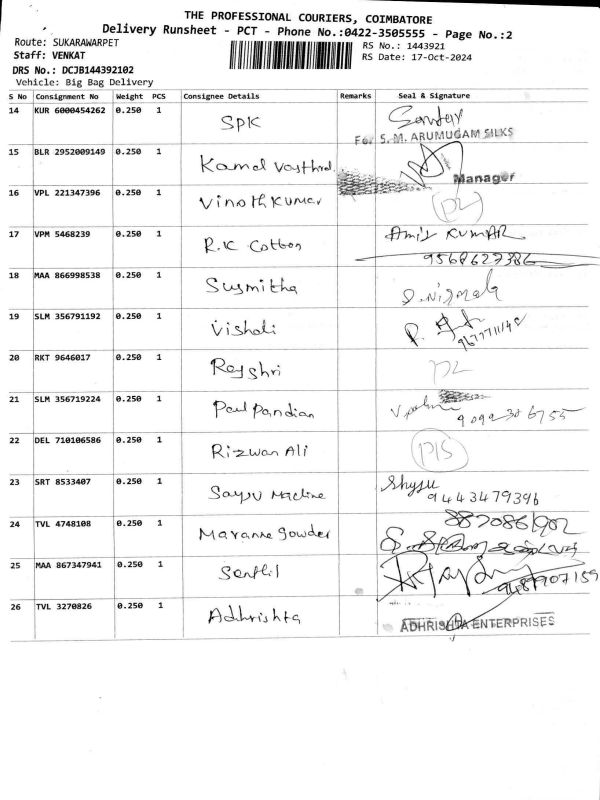 THE PROFESSIONAL COURIERS, COIMBATORE
Delivery Runsheet - PCT - Phone No.:0422-3505555 - Page No.:2
Route: SUKARAWARPET RS No.: 1443921
Staff: VENKAT RS Date: 17-Oct-2024
DRS No.: DCJB144392102
Vehicle: Big Bag Delivery
S No Consignment No Weight PCS Consignee Details Remarks Seal & Signature
14 KUR 6000454262 0.250 1 SPK
For S. M. ARUMUGAM SILKS
15 BLR 2952009149 0.250 1 Kamal
Manager
16 VPL 221347396 0.250 1 Vinoth Kumar
17 VPM 5468239 0.250 1 R.K Cotton Amit KUMAR
9568627386
18 MAA 866998538 0.250 1 Susmitha
19 SLM 356791192 0.250 1 Vishali
20 RKT 9646017 0.250 1
21 SLM 356719224 0.250 1 Paul Pandian
22 DEL 710106586 0.250 1 Rizwan Ali
23 SRT 8533407 0.250 1 Shysu
9443479396
24 TVL 4748108 0.250 1 Gowder
25 MAA 867347941 0.250 1 Senthil
26 TVL 3270826 0.250 1 Adhrishta
ADHRISHTA ENTERPRISES